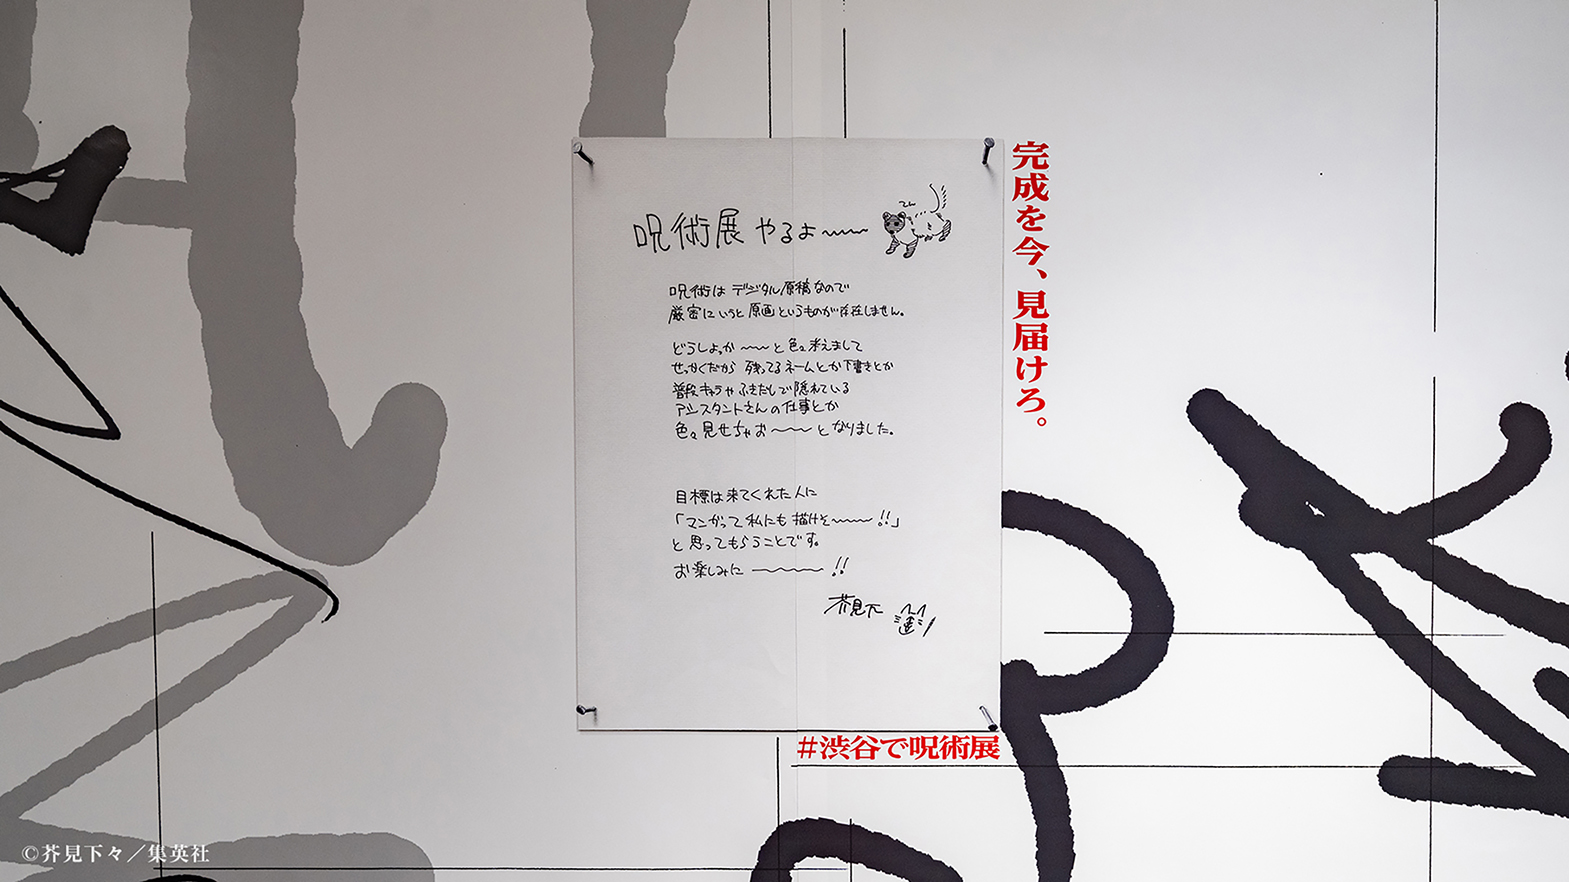 呪術展 やるよ〜〜
てん
呪術は デジタル原稿なので
厳密にいうと 原画というものが存在しません。
どうしよっか 〜〜 と 色々 考えまして
せっかくだから 残ってるネームとか下書きとか
普段キャラやふきだしで隠れている
アシスタントさんの仕事とか
色々 見せちゃお〜〜 となりました。
目標は来てくれた人に
「マンガって私にも描けそ〜〜!!」
と思ってもらうことです。
お楽しみに 〜〜 !!
芥見下々
完成を今、見届けろ。
#渋谷で呪術展
©芥見下々／集英社